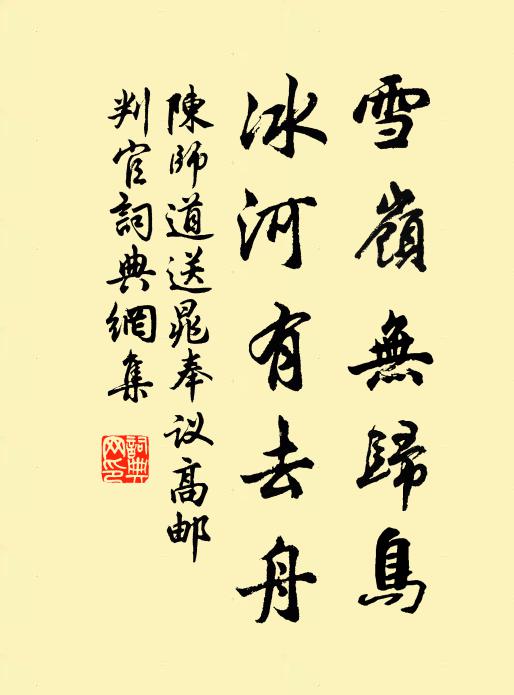 雪嶺無歸鳥
冰河有去舟
陳師道送晁奉议高邮
判官詞典網集
詞典
网印